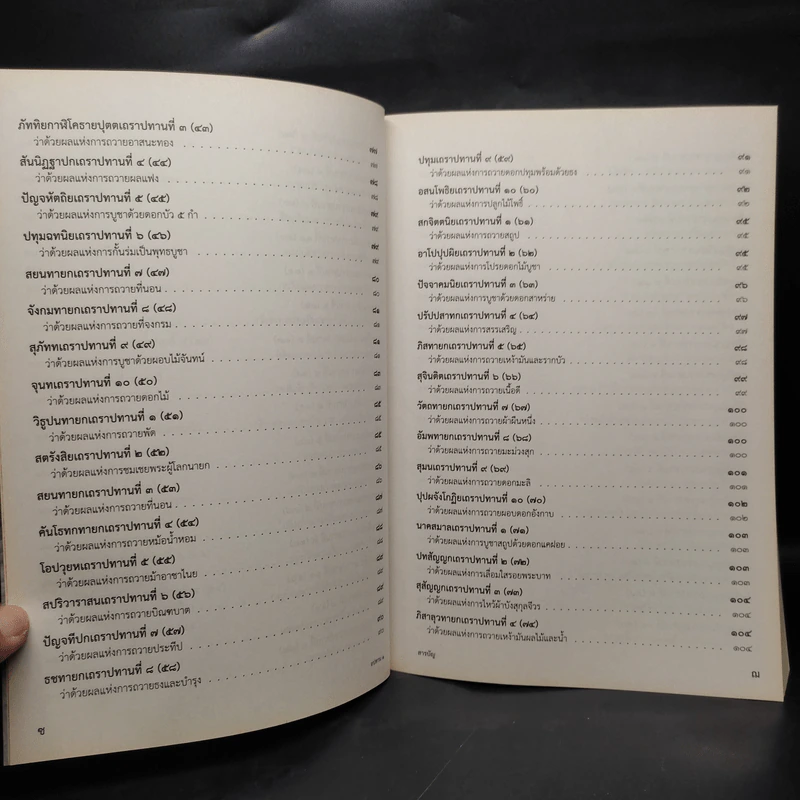 ภัททิยกาฬิโคธายปุตตเถราปทานที่ ๓ (๔๓)
ว่าด้วยผลแห่งการถวายอาสนะทอง ๗๗
สันนิฏฐาปกเถราปทานที่ ๔ (๔๔)
ว่าด้วยผลแห่งการถวายผลแฟง ๗๘
ปัญจหัตถิยเถราปทานที่ ๕ (๔๕)
ว่าด้วยผลแห่งการบูชาด้วยดอกบัว ๕ กำ ๗๙
ปทุมฉทนิยเถราปทานที่ ๖ (๔๖)
ว่าด้วยผลแห่งการกั้นร่มเป็นพุทธบูชา ๗๙
สยนทายกเถราปทานที่ ๗ (๔๗)
ว่าด้วยผลแห่งการถวายที่นอน ๘๐
จังกมทายกเถราปทานที่ ๘ (๔๘)
ว่าด้วยผลแห่งการถวายที่จงกรม ๘๑
สุภัททเถราปทานที่ ๙ (๔๙)
ว่าด้วยผลแห่งการบูชาด้วยผอบไม้จันทน์
จุนทเถราปทานที่ ๑๐ (๕๐)
ว่าด้วยผลแห่งการถวายดอกไม้
วิธูปนทายกเถราปทานที่ ๑ (๕๑)
ว่าด้วยผลแห่งการถวายพัด ๘๕
สตรังสิยเถราปทานที่ ๒ (๕๒)
ว่าด้วยผลแห่งการชมเชยพระผู้โลกนายก
สยนทายกเถราปทานที่ ๓ (๕๓)
ว่าด้วยผลแห่งการถวายที่นอน ๘๗
คันโธทกทายกเถราปทานที่ ๔ (๕๔)
ว่าด้วยผลแห่งการถวายหม้อน้ำหอม ๘๘
โอปวุยหเถราปทานที่ ๕ (๕๕)
ว่าด้วยผลแห่งการถวายม้าอาชาไนย
สปริวาราสนเถราปทานที่ ๖ (๕๖)
ว่าด้วยผลแห่งการถวายบิณฑบาต
ปัญจทีปกเถราปทานที่ ๗ (๕๗)
ว่าด้วยผลแห่งการถวายประทีป
ธชทายกเถราปทานที่ ๘ (๕๘)
ว่าด้วยผลแห่งการถวายธงและบำรุง
ซ
ปทุมเถราปทานที่ ๙ (๕๙) ๙๑
ว่าด้วยผลแห่งการถวายดอกปทุมพร้อมด้วยธง ๙๑
อสนโพธิยเถราปทานที่ ๑๐ (๖๐) ๙๒
ว่าด้วยผลแห่งการปลูกไม้โพธิ์ ๙๒
สกจิตตนิยเถราปทานที่ ๑ (๖๑) ๙๕
ว่าด้วยผลแห่งการถวายสถูป ๙๕
อาโปปุปผิยเถราปทานที่ ๒ (๖๒) ๙๕
ว่าด้วยผลแห่งการโปรยดอกไม้บูชา ๙๕
ปัจจาคมนิยเถราปทานที่ ๓ (๖๓) ๙๖
ว่าด้วยผลแห่งการบูชาด้วยดอกสาหร่าย ๙๖
ปรัปปสาทกเถราปทานที่ ๔ (๖๔) ๙๗
ว่าด้วยผลแห่งการสรรเสริญ ๙๗
ภิสทายกเถราปทานที่ ๕ (๖๕) ๙๘
ว่าด้วยผลแห่งการถวายเหง้ามันและรากบัว ๙๘
สุจินติตเถราปทานที่ ๖ (๖๖) ๙๙
ว่าด้วยผลแห่งการถวายเนื้อดี ๙๙
วัตถทายกเถราปทานที่ ๗ (๖๗) ๑๐๐
ว่าด้วยผลแห่งการถวายผ้าผืนหนึ่ง ๑๐๐
อัมพทายกเถราปทานที่ ๘ (๖๘) ๑๐๐
ว่าด้วยผลแห่งการถวายมะม่วงสุก ๑๐๐
สุมนเถราปทานที่ ๙ (๖๙) ๑๐๑
ว่าด้วยผลแห่งการถวายดอกมะลิ ๑๐๑
ปุปผจังโกฏิยเถราปทานที่ ๑๐ (๗๐) ๑๐๒
ว่าด้วยผลแห่งการถวายผอบดอกอังกาบ ๑๐๒
นาคสมาลเถราปทานที่ ๑ (๗๑) ๑๐๓
ว่าด้วยผลแห่งการบูชาสถูปด้วยดอกแคฝอย ๑๐๓
ปทสัญญกเถราปทานที่ ๒ (๗๒) ๑๐๓
ว่าด้วยผลแห่งการเลื่อมใสรอยพระบาท ๑๐๓
สุสัญญกเถราปทานที่ ๓ (๗๓) ๑๐๔
ว่าด้วยผลแห่งการไหว้ผ้าบังสุกุลจีวร ๑๐๔
ภิสาลุวทายกเถราปทานที่ ๔ (๗๔) ๑๐๔
ว่าด้วยผลแห่งการถวายเหง้ามันผลไม้และน้ำ ๑๐๔
สารบัญ
ฌ